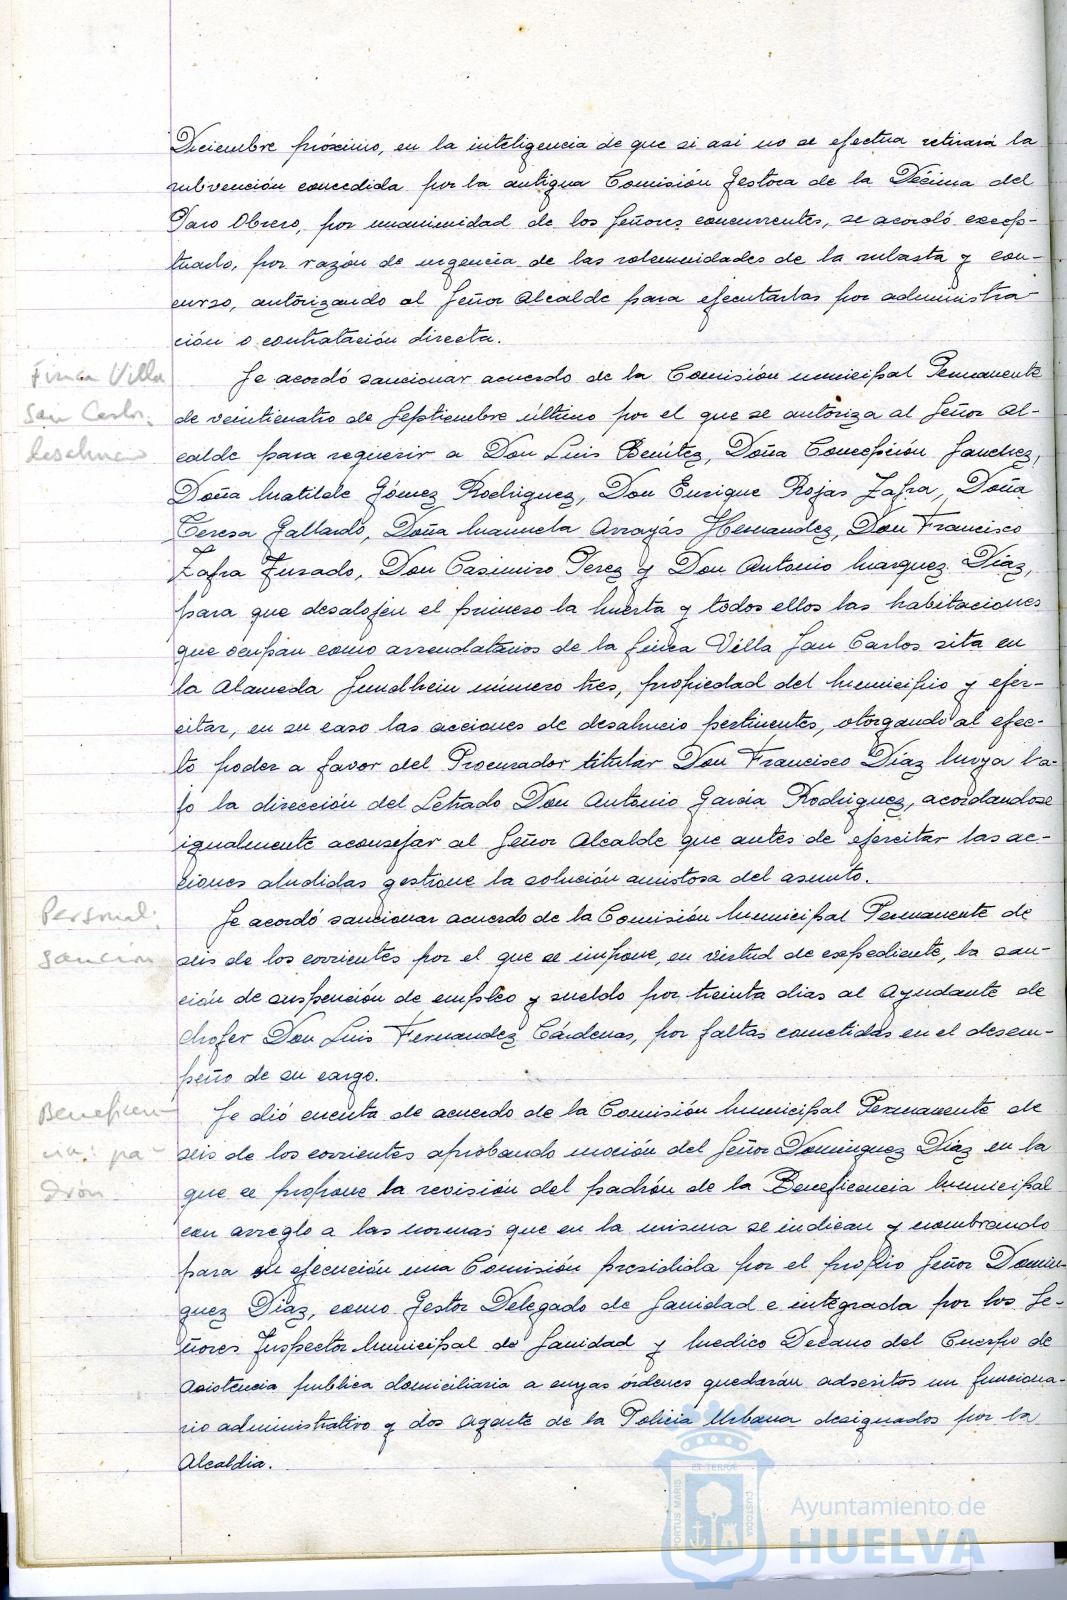 Diciembre próximo, en la inteligencia de que si asi no se efectua retirará la
subvención concedida por la antigua Comisión Gestora de la Décima del
Paro Obrero, por unanimidad de los Señores concurrentes, se acordó excep-
tuarlo, por razón de urgencia de las solemnidades de la subasta y con-
curso, autorizando al Señor Alcalde para ejecutarlas por administra-
ción o contratación directa.
Finca Villa
San Carlos:
desahucio
Se acordó sancionar acuerdo de la Comisión municipal Permanente
de veinticuatro de Septiembre último por el que se autoriza al Señor Al-
calde para requerir a Don Luis Benítez, Doña Concepción Sanchez,
Doña Matilde Gómez Rodriguez, Don Enrique Rojas Zafra, Doña
Teresa Gallardo, Doña Manuela Arrayás Hernandez, Don Francisco
Zafra Jurado, Don Casimiro Perez y Don Antonio Marquez Diaz,
para que desalojen el primero la huerta y todos ellos las habitaciones
que ocupan como arrendatarios de la finca Villa San Carlos sita en
la Alameda Sundhein número tres, propiedad del Municipio y ejer-
citar, en su caso las acciones de desahucio pertinentes, otorgando al efec-
to poder a favor del Procurador titular Don Francisco Díaz Moya ba-
jo la dirección del Letrado Don Antonio García Rodriguez, acordandose
igualmente aconsejar al Señor Alcalde que antes de ejercitar las ac-
ciones aludidas gestione la solución amistosa del asunto.
Personal:
sanción
Se acordó sancionar acuerdo de la Comisión Municipal Permanente de
seis de los corrientes por el que se impone, en virtud de expediente, la san-
ción de suspención de empleo y sueldo por treinta dias al Ayudante de
chofer Don Luis Fernandez Cárdenas, por faltas cometidas en el desem-
peño de su cargo.
Beneficen
cia: pa-
drón
Se dió cuenta de acuerdo de la Comisión Municipal Permanente de
seis de los corrientes aprobando moción del Señor Dominguez Diaz en la
que se propone la revisión del padrón de la Beneficencia Municipal
con arreglo a las normas que en la misma se indican y nombrando
para su ejecución una Comisión presidida por el propio Señor Domin-
guez Diaz, como Gestor Delegado de Sanidad e integrada por los Se-
ñores Inspector Municipal de Sanidad y Medico Decano del Cuerpo de
Asistencia publica domiciliaria a cuyas órdenes quedarán adscritos un funciona-
rio administrativo y dos Agente de la Policia Urbana designados por la
Alcaldia.
ET TERRÆ
PORTUS MARIS
CUSTODIA
Ayuntamiento de
HUELVA